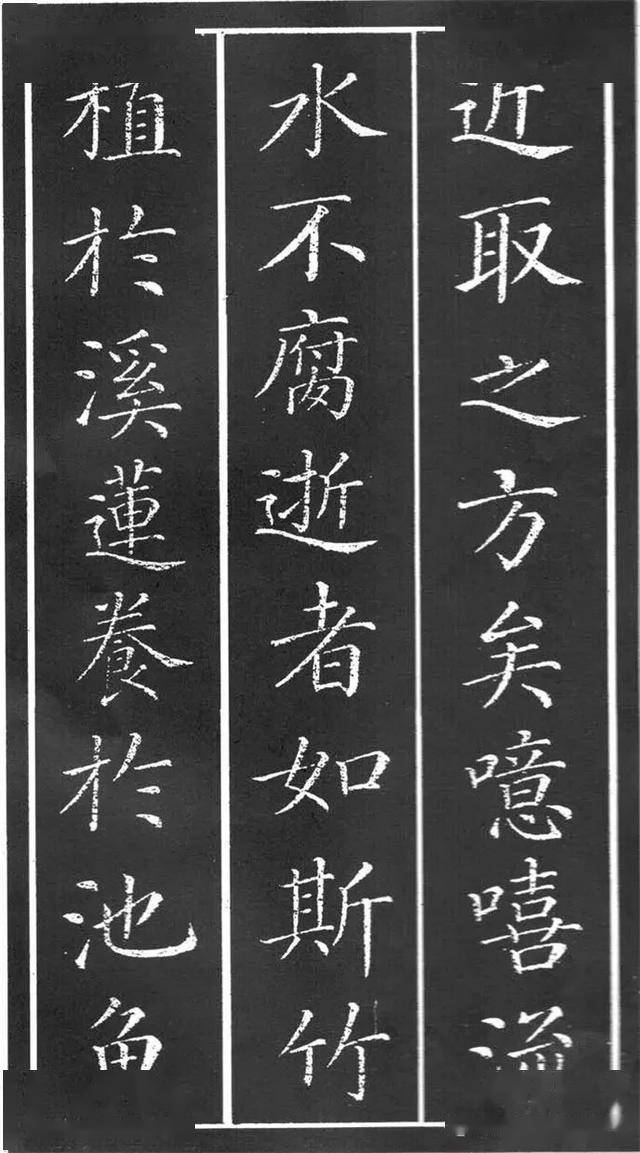 近取之方矣噫嘻流
水不腐逝者如斯竹
植於溪蓮養於池